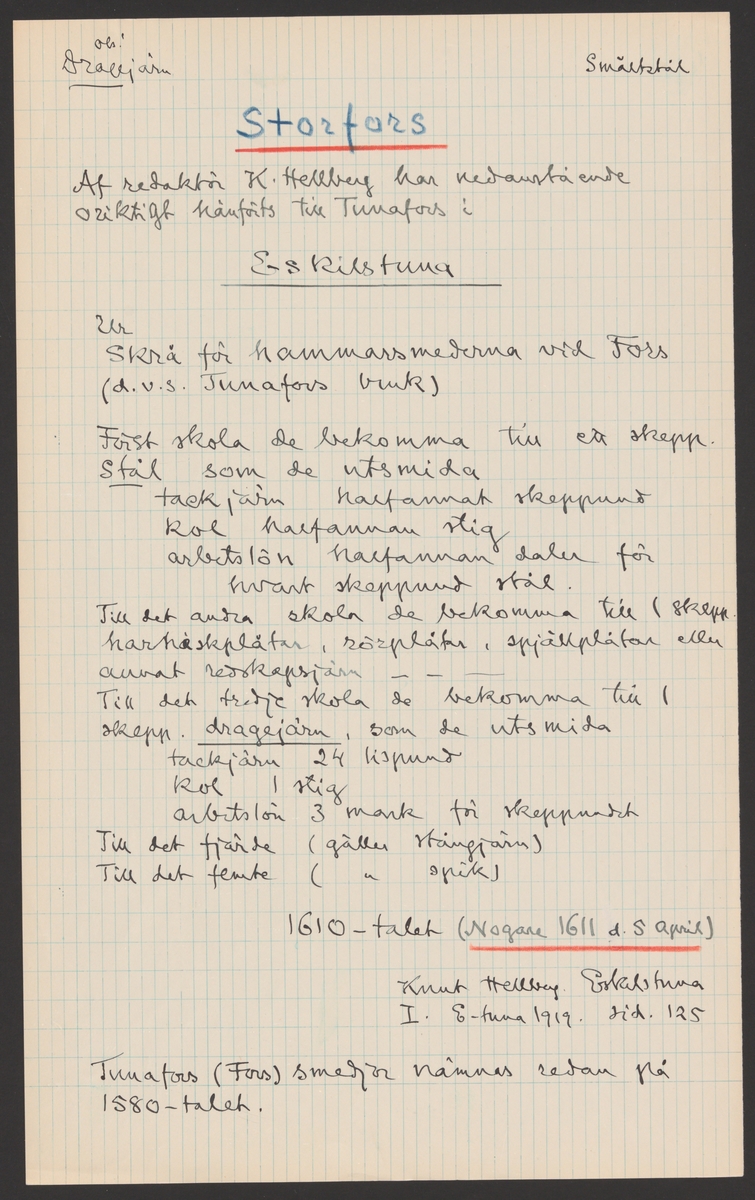 obs!
Dragejärn
Smältstål
Storfors
Af redaktör K. Hellberg har nedanstående
oriktigt hänförts till Tunafors i
Eskilstuna
Ur
Skrå för hammarsmederna vid Fors
(d.v.s. Tunafors bruk)
Först skola de bekomma till ett skepp.
Stål som de utsmida
tackjärn halfannat skeppund
kol halfannan stig
arbetslön halfannan daler för
hvart skeppund stål.
Till det andra skola de bekomma till 1 skepp.
harneskplåtar, rörplåtar, spjällplåtar eller
annat redskapsjärn — — —
Till det tredje skola de bekomma till 1
skepp. dragejärn, som de utsmida
tackjärn 24 lispund
kol 1 stig
arbetslön 3 mark för skeppundet
Till det fjärde (gäller stångjärn)
Till det femte ( " spik)
1610-talet (Nogare 1611 d. 5 april)
Knut Hellberg. Eskilstuna
I. E-tuna 1919. sid. 125
Tunafors (Fors) smedjor nämnas redan på
1580-talet.